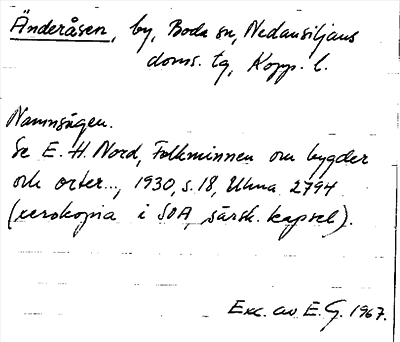 Änderåsen, by, Boda sn, Nedansiljans
doms. tg, Kopp. l.
Namnsägen.
Se E. H. Nord, Folkminnen om bygder
och orter..., 1930, s. 18, Ulma 2794
(xerokopia i SOA, särsk. kapsel).
Exc. av E. G. 1967.